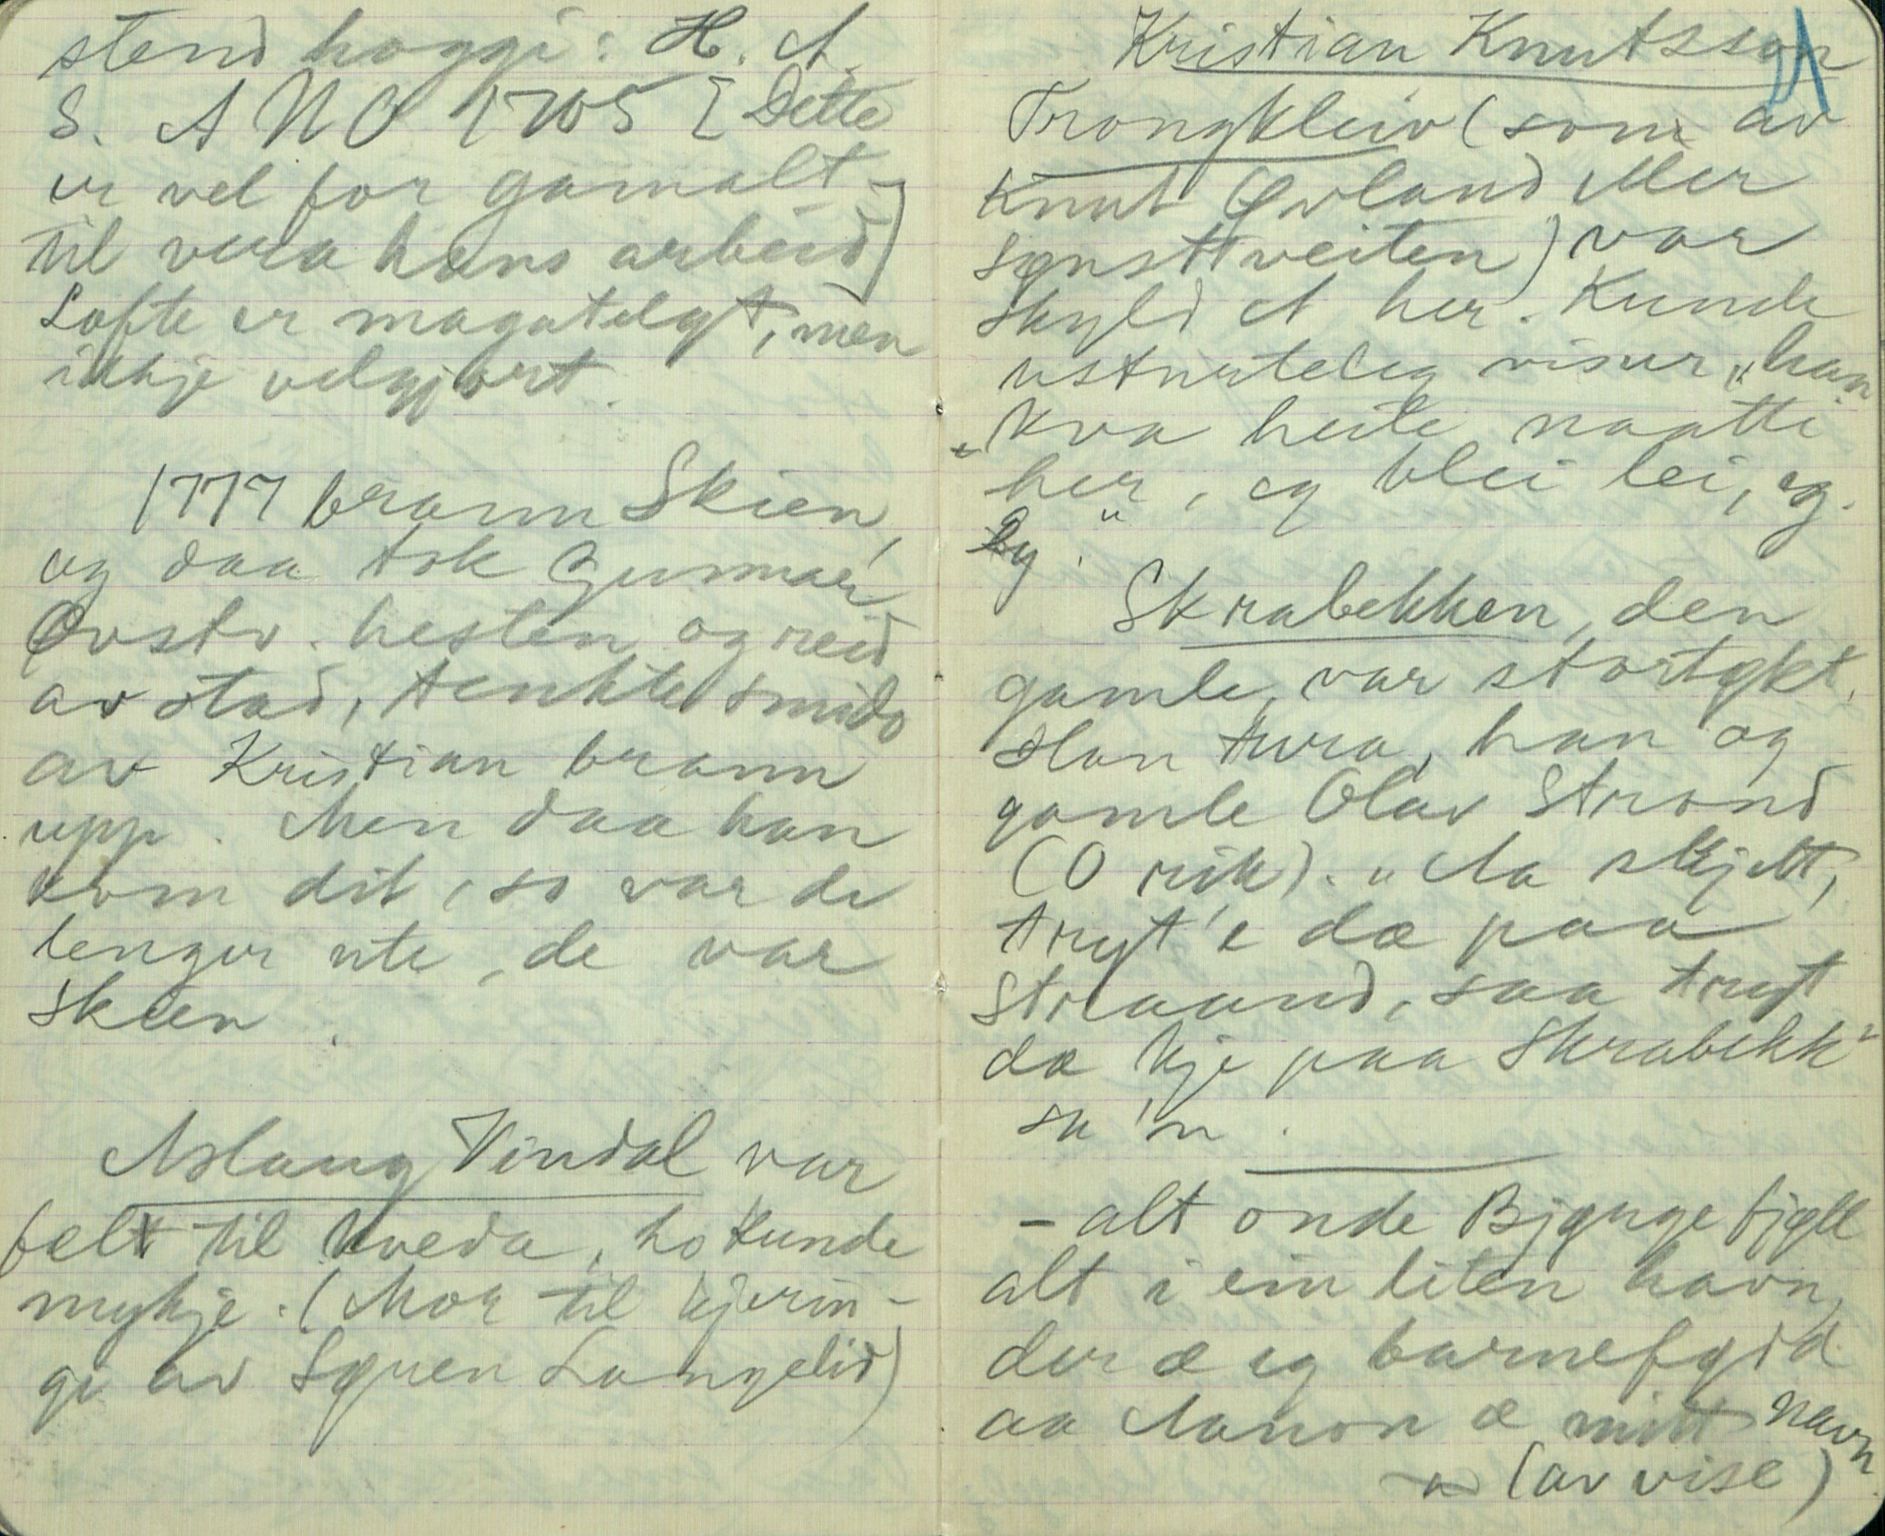 stend hoggi: H. A.
S. ANO 1705 [Dette
er vel for gamalt
til vera hans arbeid]
Lofte er magatelgt, men
ikkje velgjort.
1777 brann Skien,
og daa tok Gunnar
Øvstv. hesten og reid
av stad, tenkte smido
av Kristian brann
upp. Men daa han
kom dit, so var de
lenger ute, de var
Skien.
Aslaug Vindal var
felt til kveda, ho kunde
mykje. (Mor til kjerin-
gi av Søren Langelid)
Kristian Knutsson
Trongkleiv (som av
Knut Øvland eller
Synsttveiten) var
skyld et her. Kunde
ustyrteleg visur, "han
kva heite naatti
her", eg blei lei, eg.
Eg.
Skrabekken, den
gamle, var stortykt.
Slan tura, han og
gamle Olav Strond
(O rik). "Aa skjett,
tryt'e dæ paa
Straand, saa tryt
dæ kje paa Skrabekk"
sa'n.
- alt onde Bjønge fjøll
alt i ein liten havn,
der æ eg barnefødd
aa Aanon æ mitt navn
(av vise)